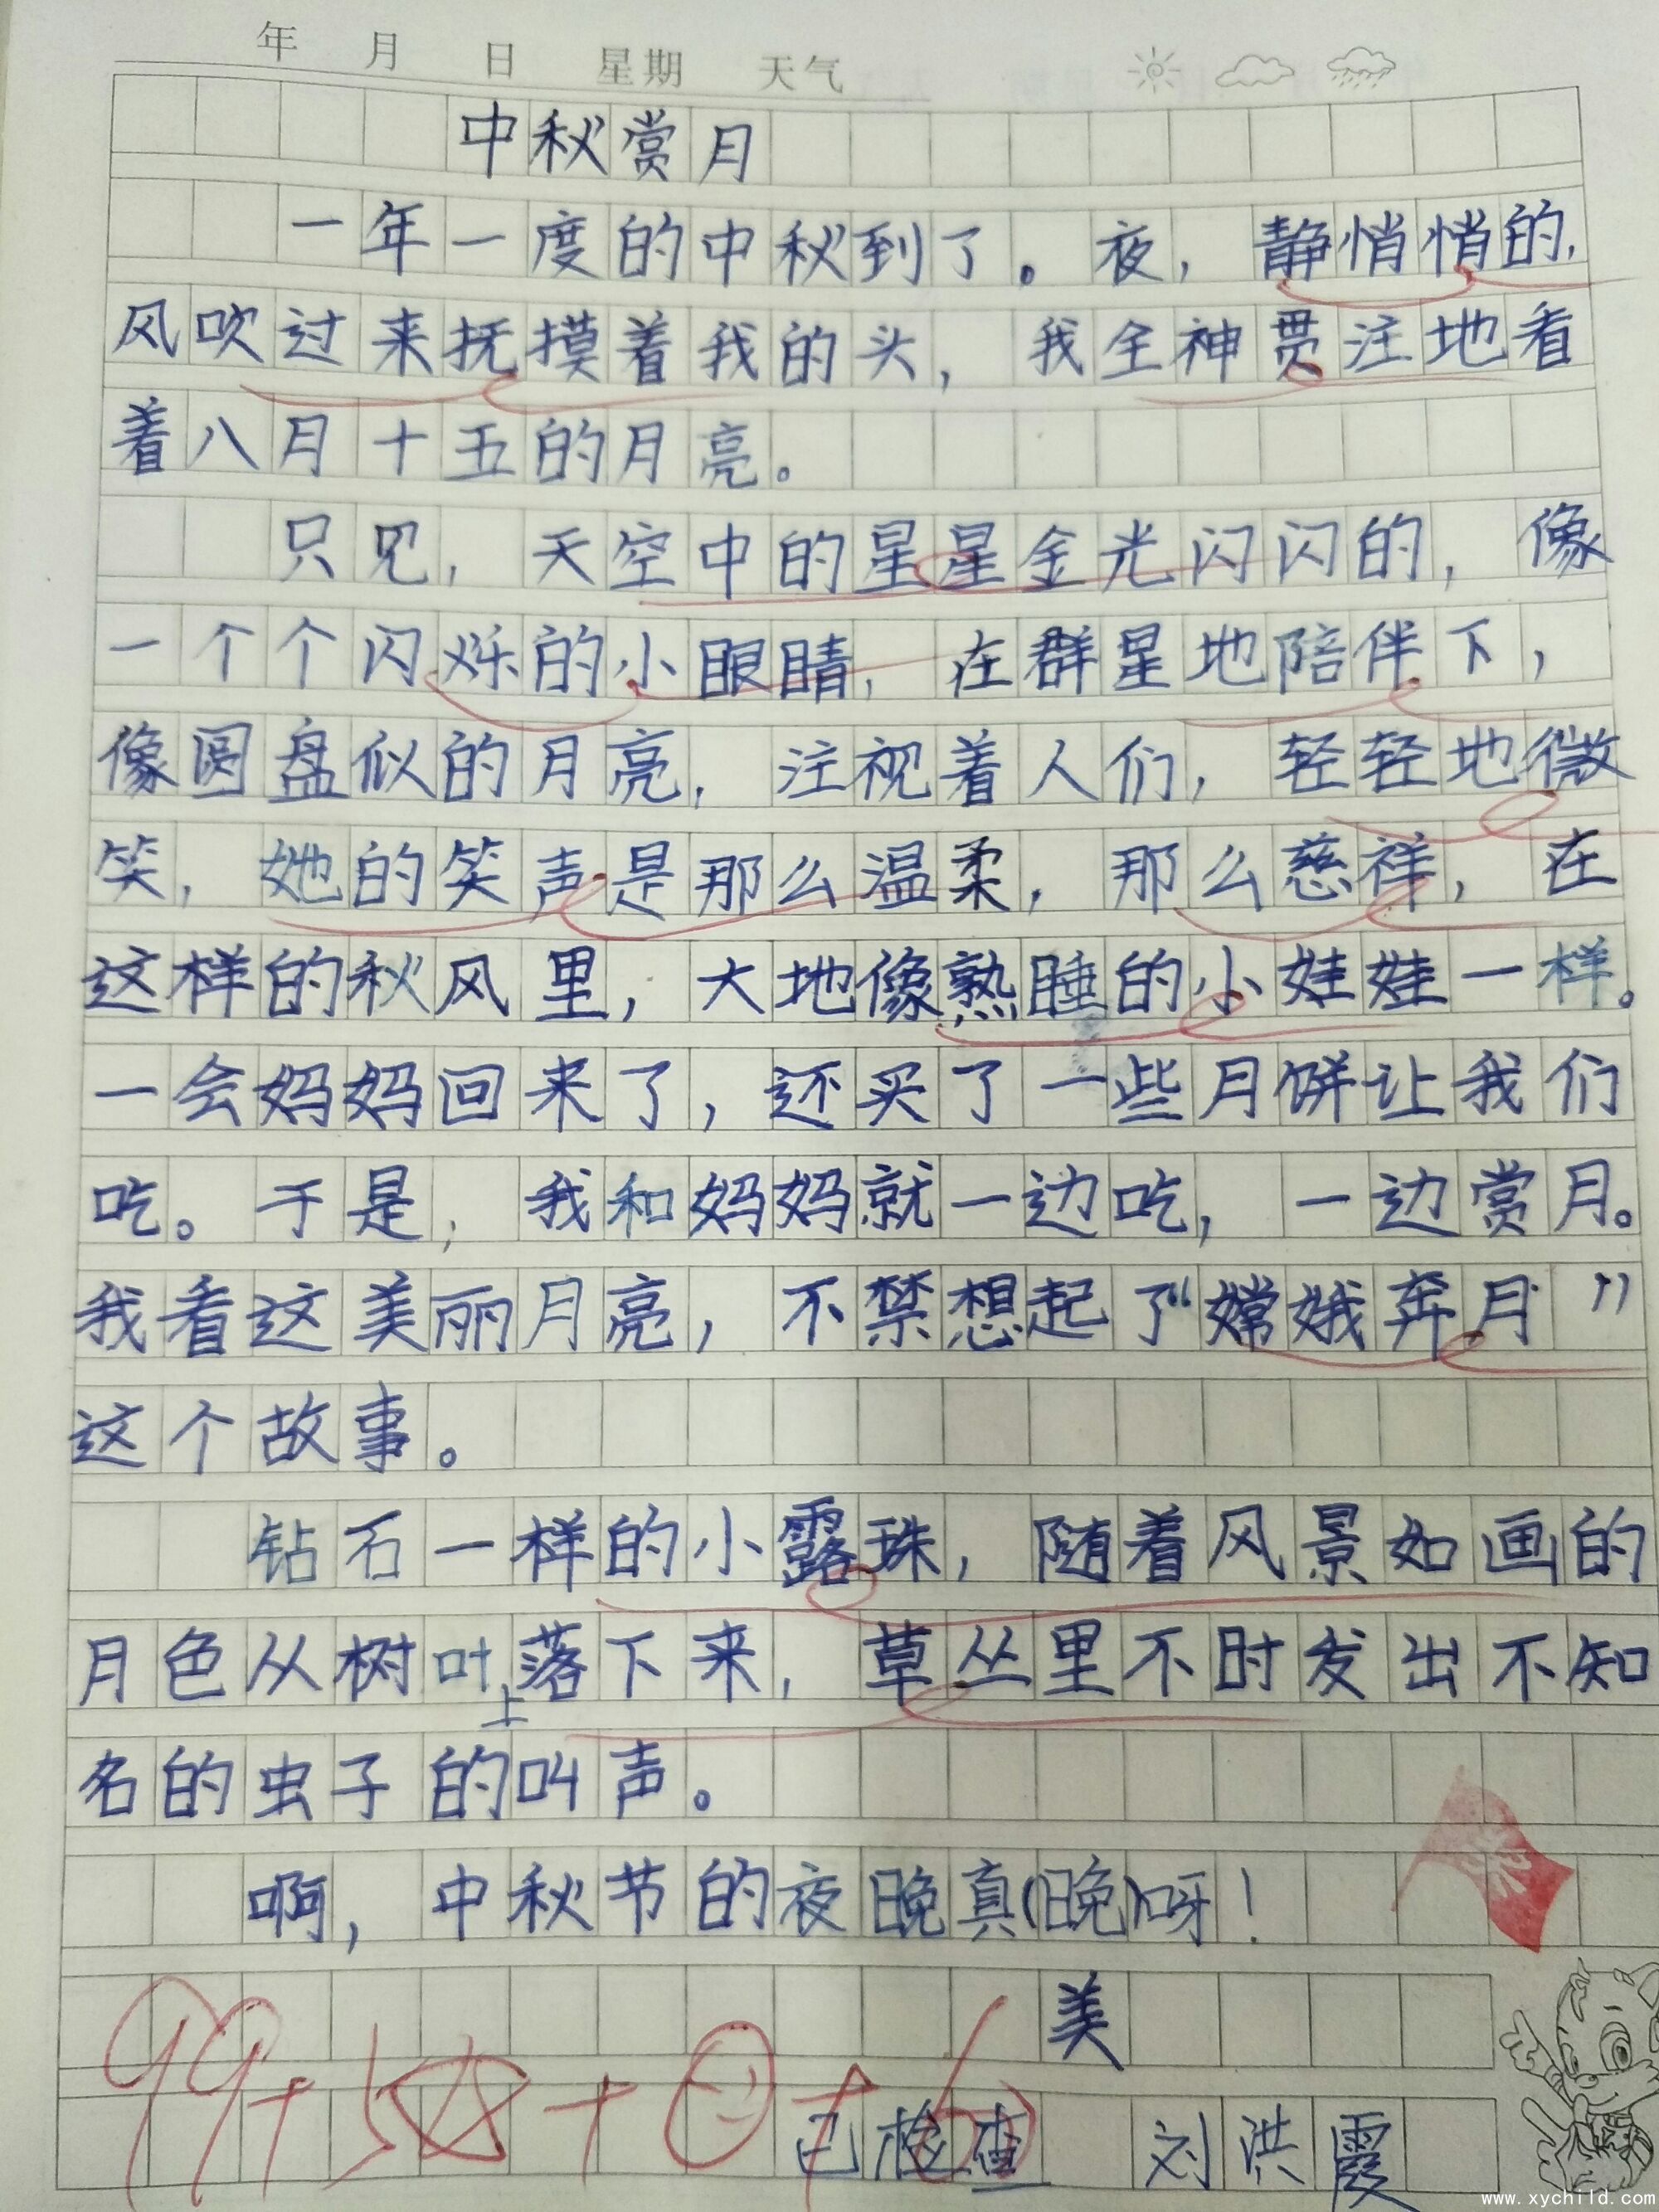 年 月 日 星期 天气
中秋赏月
一年一度的中秋到了。夜，静悄悄的，
风吹过来抚摸着我的头，我全神贯注地看
着八月十五的月亮。
只见，天空中的星星金光闪闪的，像
一个个闪烁的小眼睛，在群星地陪伴下，
像圆盘似的月亮，注视着人们，轻轻地微
笑，她的笑声是那么温柔，那么慈祥，在
这样的秋风里，大地像熟睡的小娃娃一样。
一会妈妈回来了，还买了一些月饼让我们
吃。于是，我和妈妈就一边吃，一边赏月。
我看这美丽月亮，不禁想起了“嫦娥奔月”
这个故事。
钻石一样的小露珠，随着风景如画的
月色从树叶上落下来，草丛里不时发出不知
名的虫子的叫声。
啊，中秋节的夜晚真(晚)呀！
美
99+5
已检查 刘洪霞
www.xychild.com